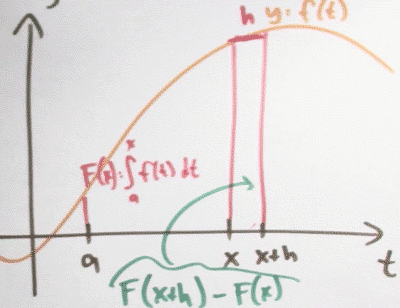 h y=f(t)
F(x)=∫ₐˣ f(t) dt
a x x+h t
F(x+h) - F(x)